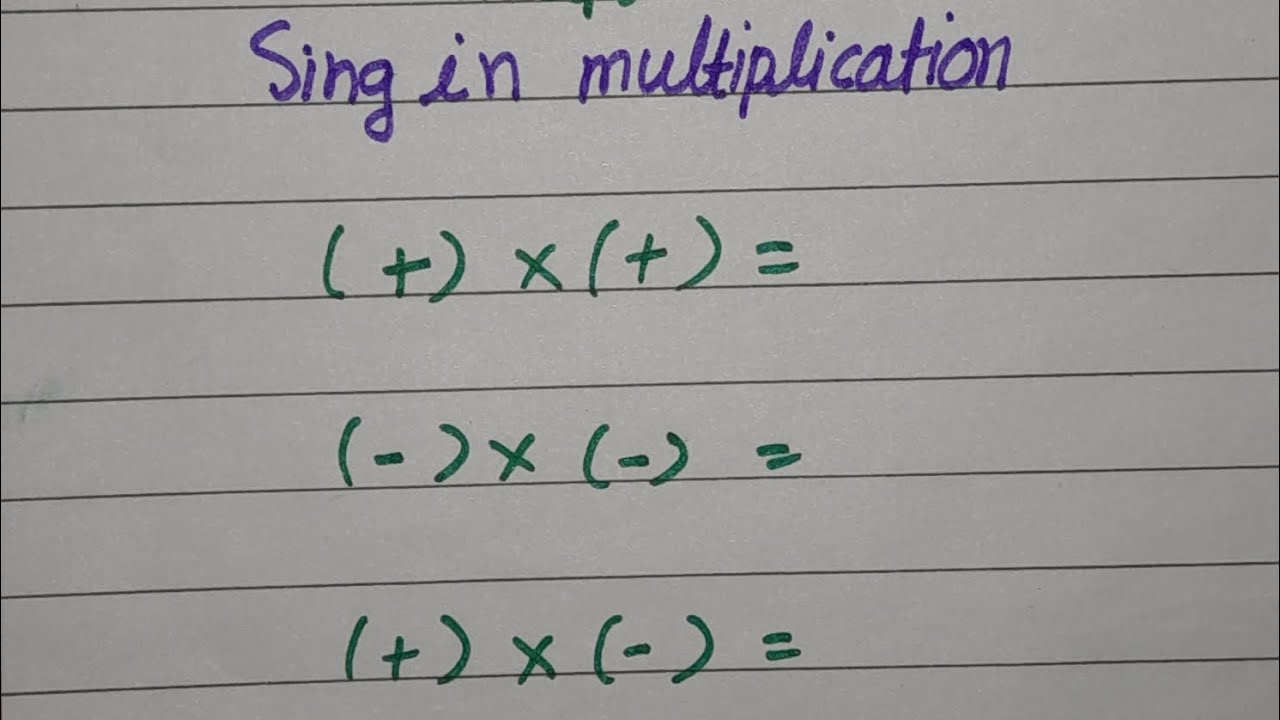 Sing in multiplication
(+) × (+) =
(-) × (-) =
(+) × (-) =